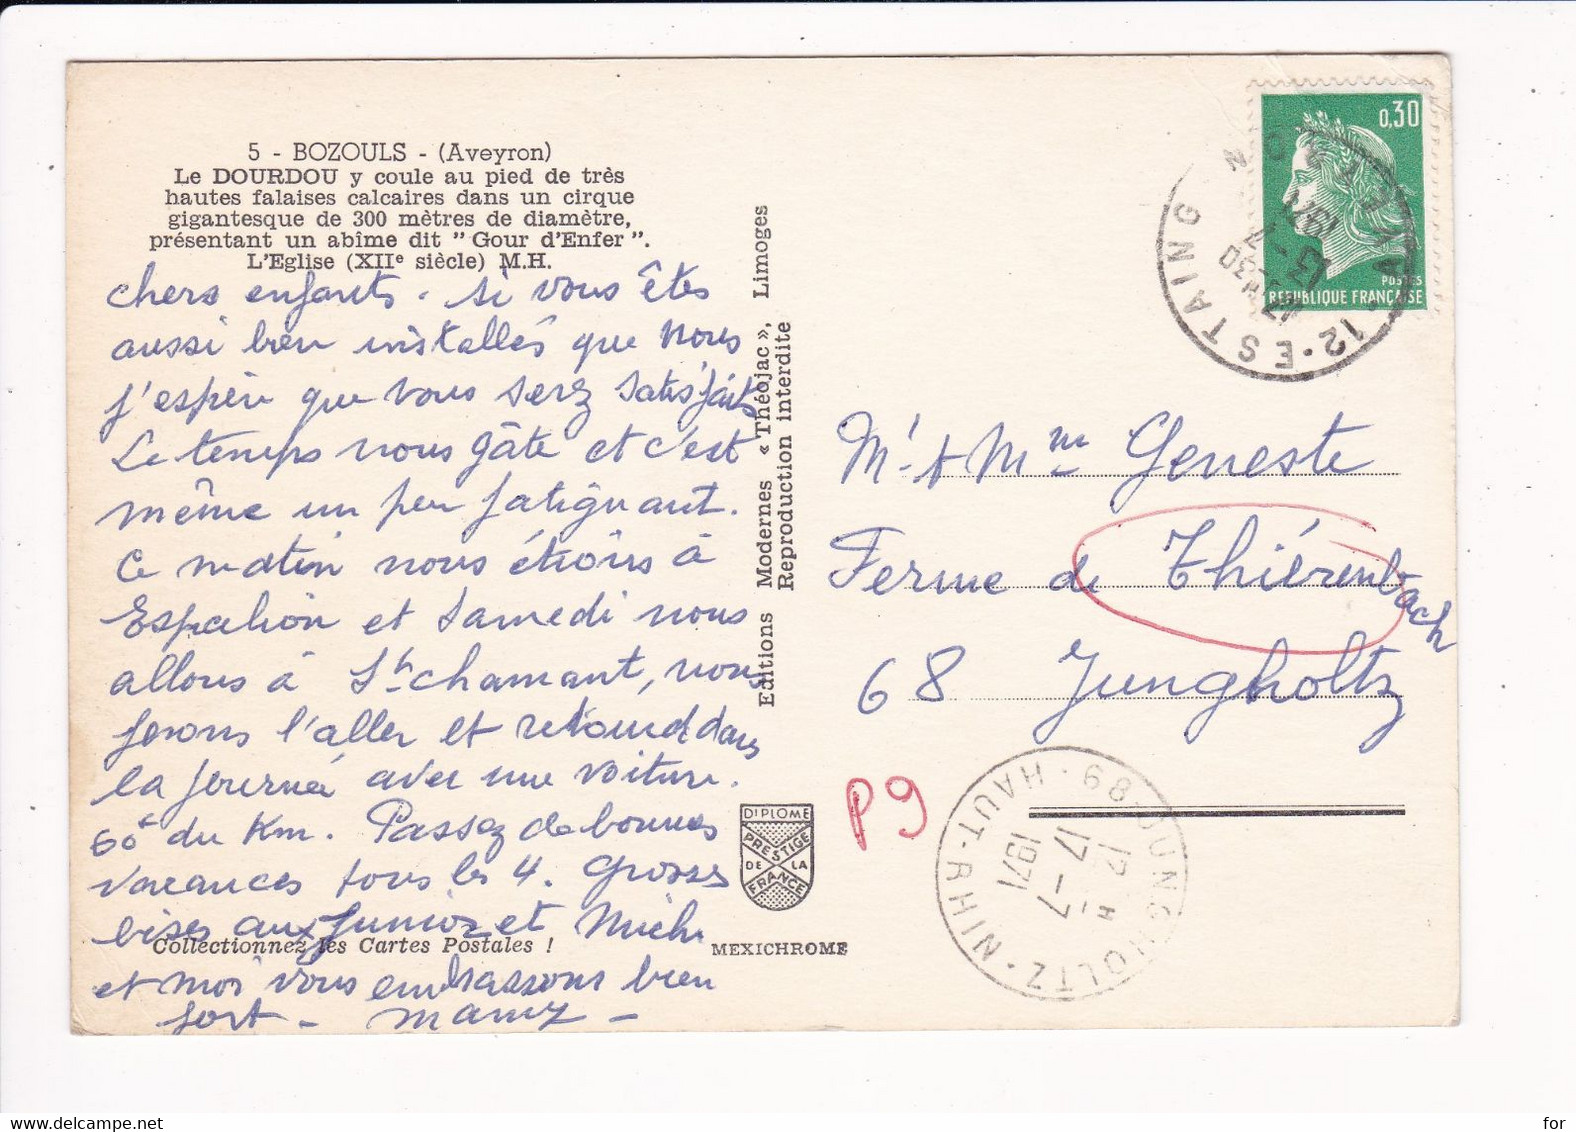 5 - BOZOULS - (Aveyron)
Le DOURDOU y coule au pied de très
hautes falaises calcaires dans un cirque
gigantesque de 300 mètres de diamètre,
présentant un abîme dit " Gour d'Enfer ".
L'Eglise (XIIe siècle) M.H.
chers enfants. si vous êtes
aussi bien installés que nous
j'espère que vous serez satisfaits
Le temps nous gâte et c'est
même un peu fatiguant.
Ce matin nous étions à
Espalion et samedi nous
allons à St chamant, nous
ferons l'aller et retour dans
la journée avec une voiture.
60c du Km. Passez de bonnes
vacances tous les 4. Grosses
bises aux Junior et Mich
et moi vous embrassons bien
fort - Mamy -
Collectionnez les Cartes Postales !
Editions Modernes « Théojac », Limoges
Reproduction interdite
DIPLOME
PRESTIGE
DE LA
FRANCE
MEXICHROME
0,30
POSTES
REPUBLIQUE FRANÇAISE
12 · ESTAING · AVEYRON
17 H 30
13 - 7
1971
Mr & Mme Geneste
Ferme de Thiérenbach
68 Jungholtz
P9
68 · JUNGHOLTZ · HAUT-RHIN
12 H
17 - 7
1971
for